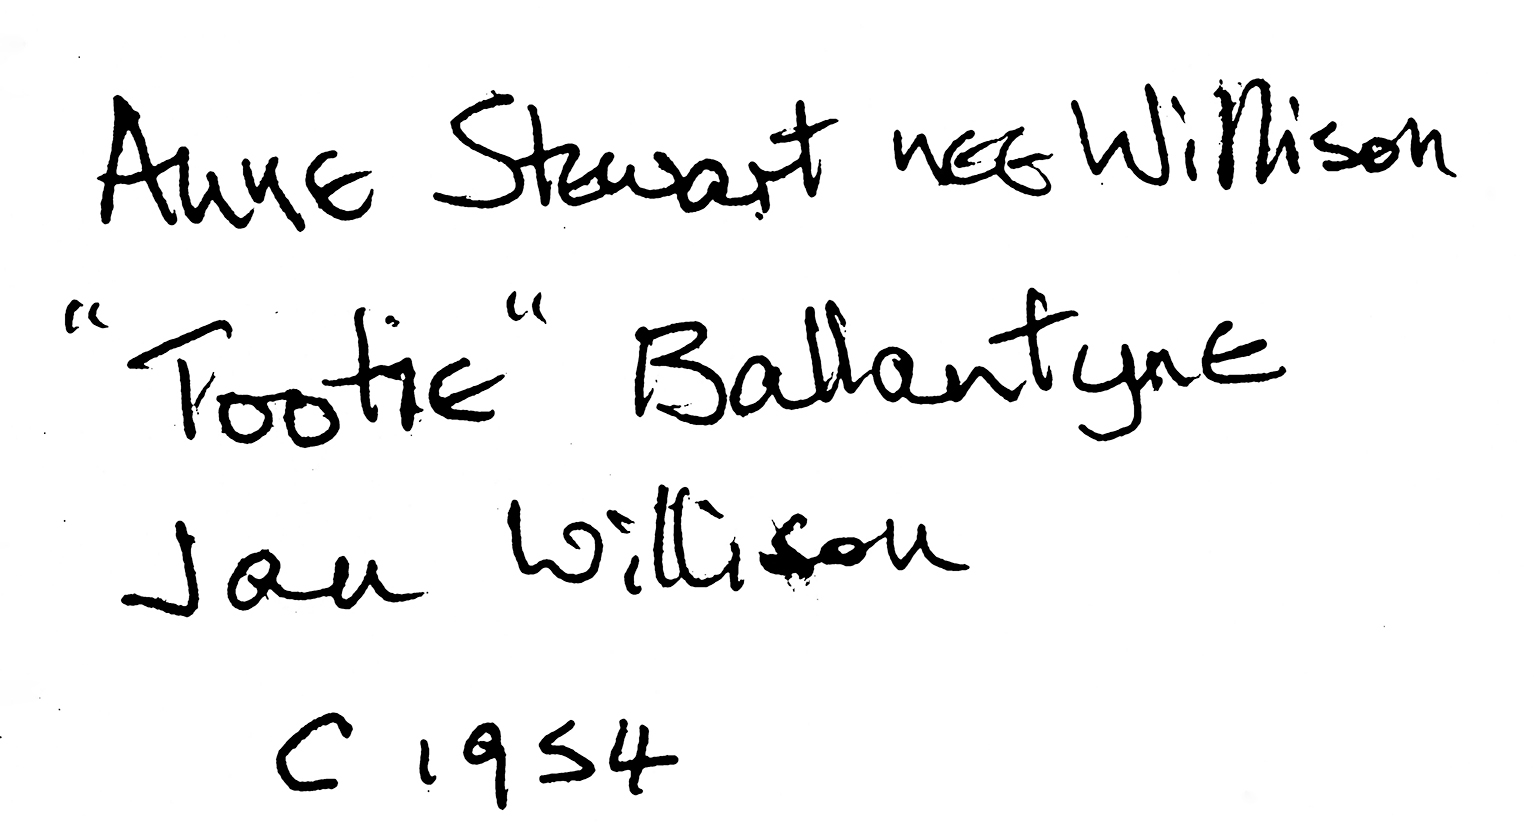 Anne Stewart nee Willison
"Tootie" Ballantyne
Jan Willison
C 1954